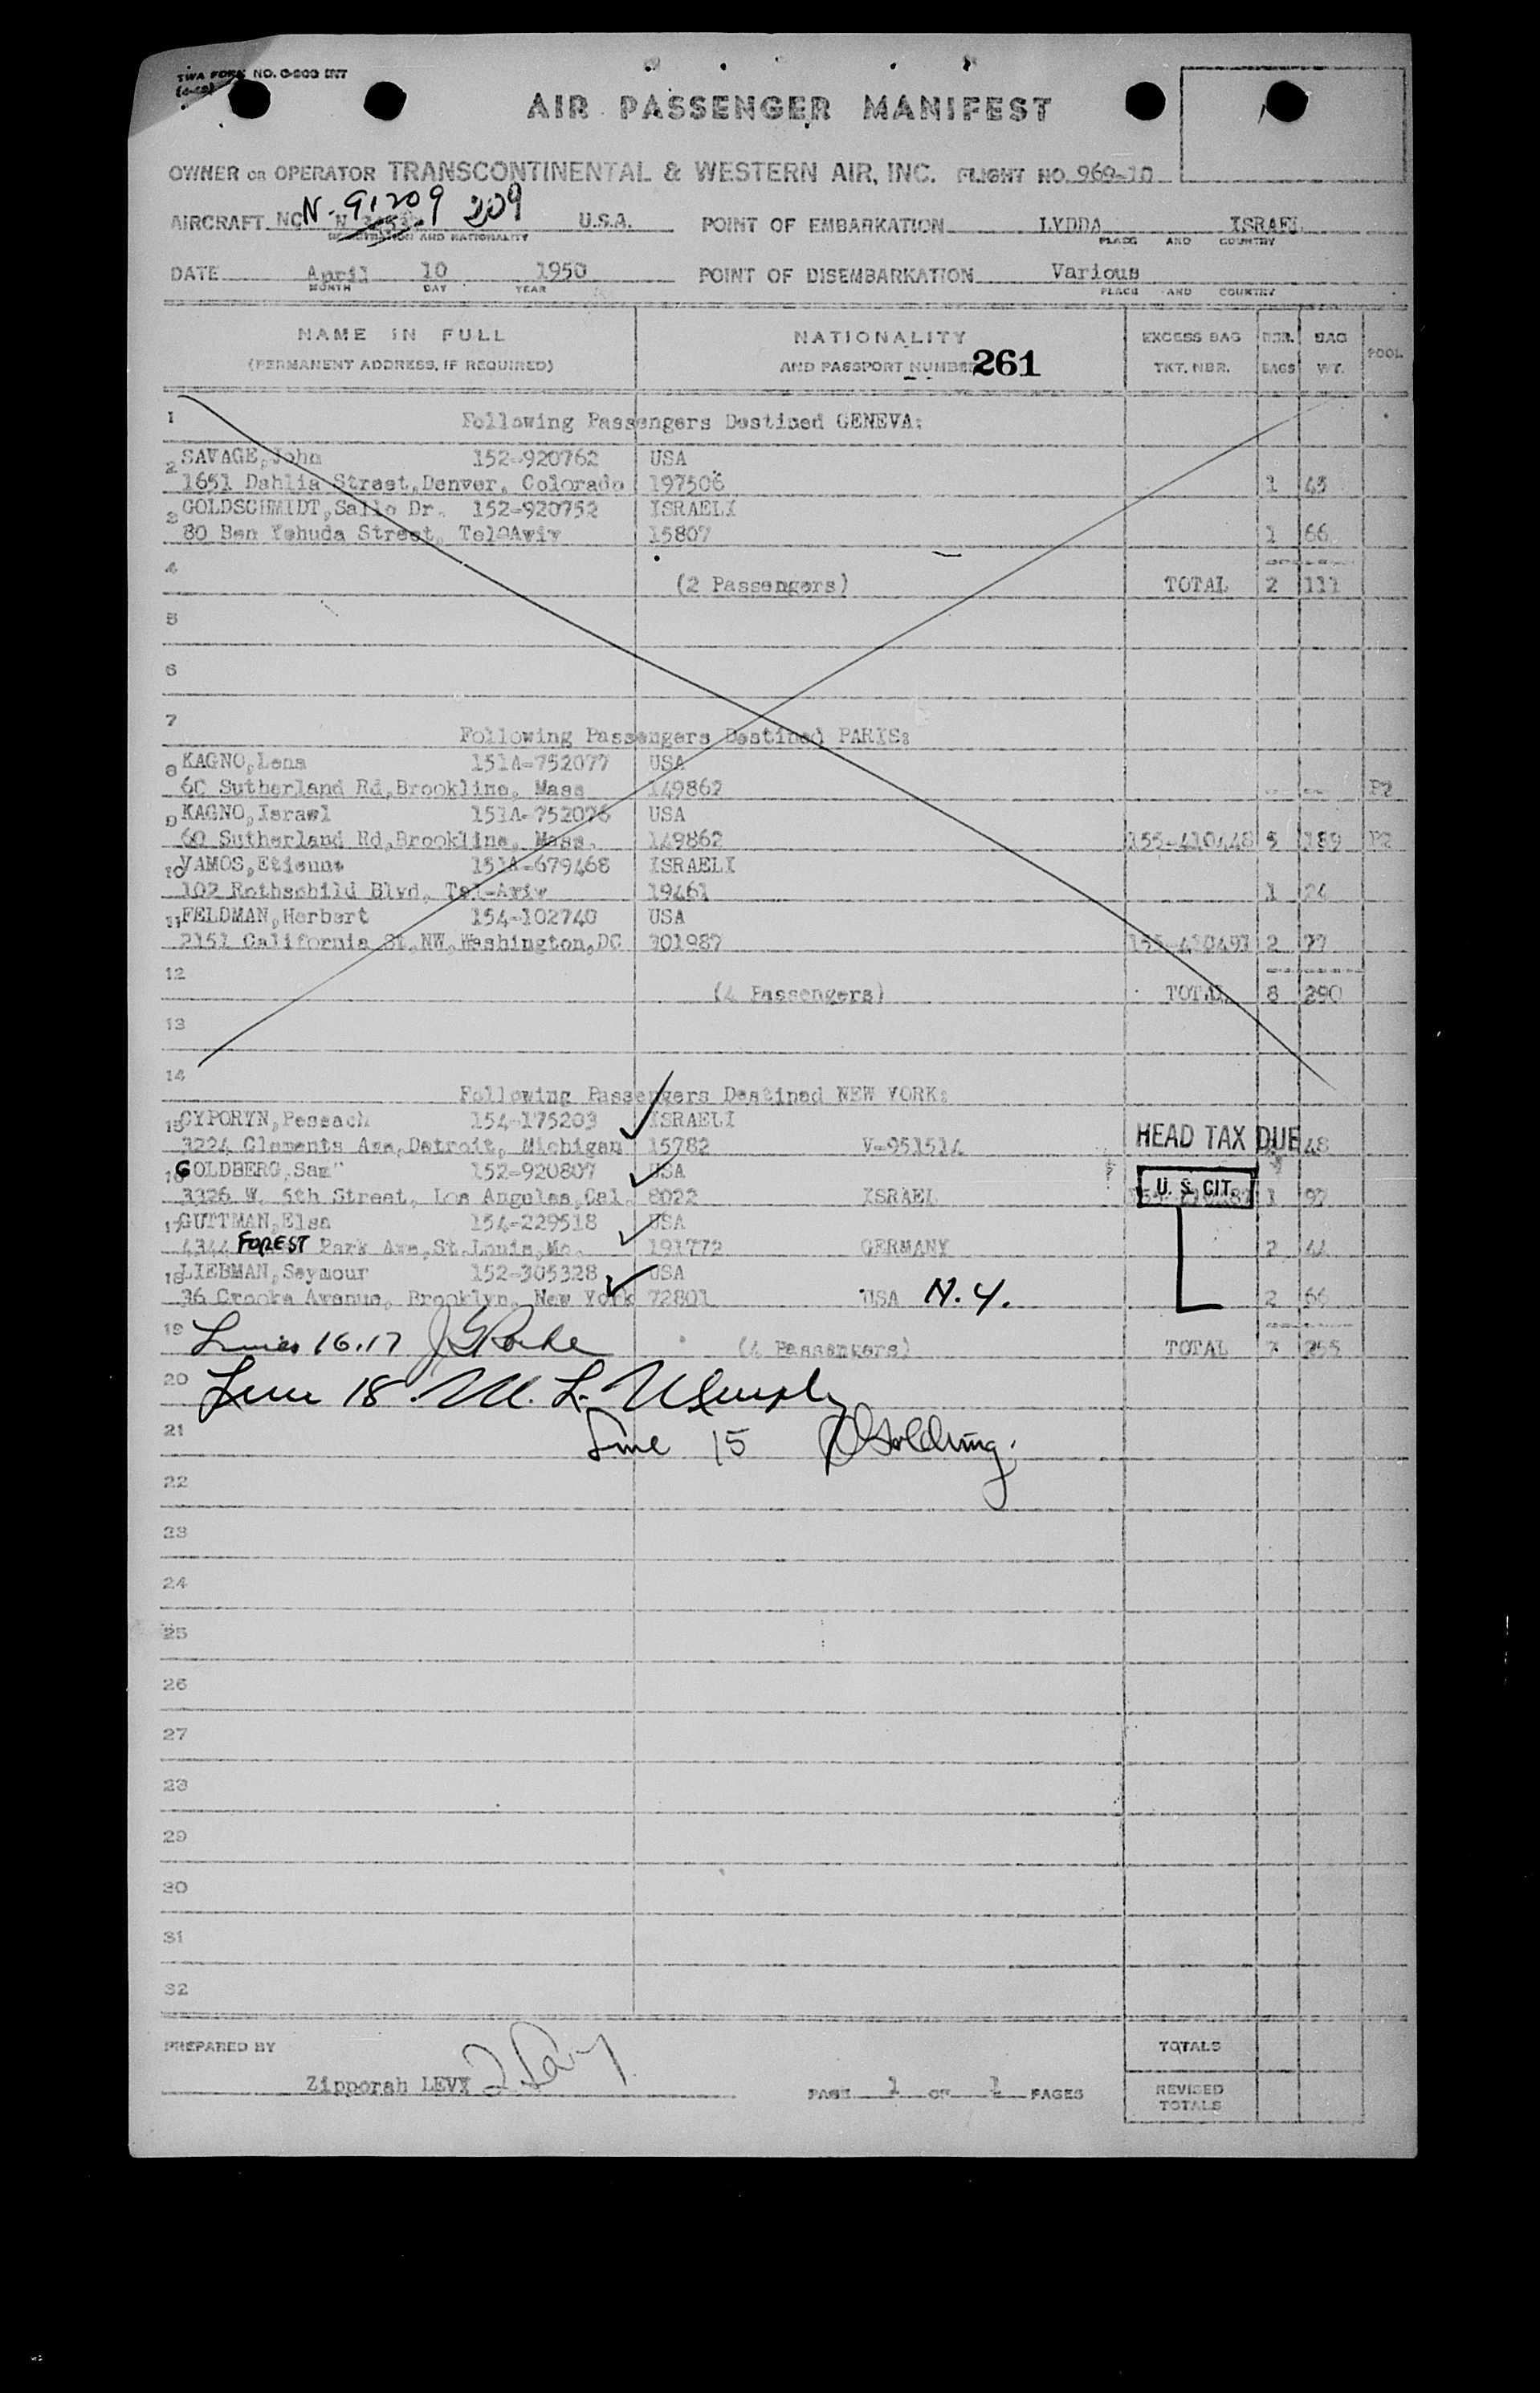 TWA FORM NO. O-800 INT
AIR PASSENGER MANIFEST
OWNER OR OPERATOR TRANSCONTINENTAL & WESTERN AIR, INC. FLIGHT NO. 969-10
AIRCRAFT NC N-91209 209 U.S.A. POINT OF EMBARKATION LYDDA ISRAEL
REGISTRATION AND NATIONALITY PLACE AND COUNTRY
DATE April 10 1950 POINT OF DISEMBARKATION Various
MONTH DAY YEAR PLACE AND COUNTRY
NAME IN FULL NATIONALITY EXCESS BAG NBR. BAG POOL
(PERMANENT ADDRESS, IF REQUIRED) AND PASSPORT NUMBER 261 TKT. NBR. BAGS WT.
1 Following Passengers Destined GENEVA:
2 SAVAGE,John 152-920762 USA
1651 Dahlia Street,Denver, Colorado 197506 1 45
3 GOLDSCHMIDT,Sallo Dr. 152-920752 ISRAELI
80 Ben Yehuda Street, Tel-Aviv 15807 1 66
4 (2 Passengers) TOTAL 2 111
5
6
7 Following Passengers Destined PARIS:
8 KAGNO,Lena 151A-752077 USA
60 Sutherland Rd,Brookline, Mass 149862 -- -- P2
9 KAGNO,Israwl 151A-752076 USA
60 Sutherland Rd,Brookline, Mass. 149862 155-410448 5 189 P2
10 VAMOS,Etienne 151A-679468 ISRAELI
102 Rothschild Blvd, Tel-Aviv 19461 1 24
11 FELDMAN,Herbert 154-102740 USA
2151 California St,NW,Washington,DC 301987 2 77
12 (4 Passengers) TOTAL 8 290
13
14 Following Passengers Destined NEW YORK:
15 CYPORYN,Peseach 154-175203 ISRAELI
3224 Clements Ave,Detroit, Michigan 15782 V-951514 HEAD TAX DUE 48
16 GOLDBERG,Sam 152-920807 USA
3326 W. 5th Street, Los Angules,Cal. 8022 ISRAEL U. S. CIT. 1 97
17 GUTTMAN,Elsa 154-229518 USA
4344 FOREST Park Ave,St.Louis,Mo. 191772 GERMANY 2 44
18 LIEBMAN,Seymour 152-305328 USA
36 Crooke Avenue, Brooklyn, New York 72801 USA N.Y. 2 66
19 Lines 16.17 (4 Passengers) TOTAL 7 255
20 Line 18. M. L. Murphy
21 Line 15 Golding.
22
23
24
25
26
27
28
29
30
31
32
PREPARED BY TOTALS
Zipporah LEVY PAGE 1 OF 1 PAGES REVISED
TOTALS